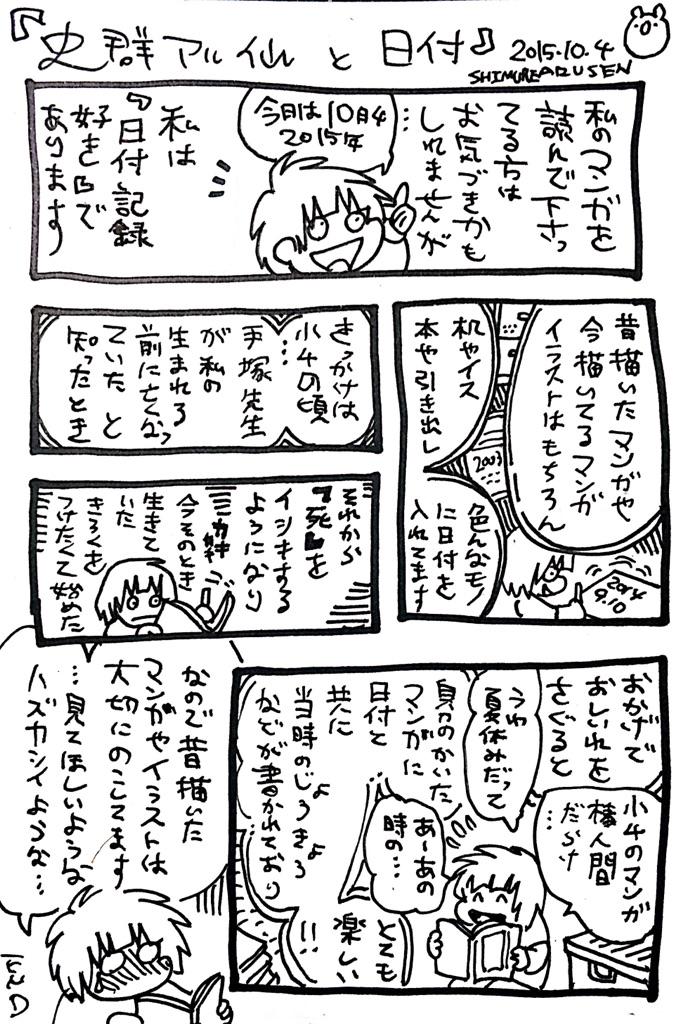 『史群アル仙と日付』
2015.10.4
SHIMUREARUSEN
私のマンガを
読んで下さっ
てる方は
お気づきかも
しれませんが
…
今日は10月4
2015年
私は
『日付』記録
好きBで
あります
昔描いたマンガや
今描いてるマンガ
イラストはもちろん
机やイス
本や引き出し
2003
色んなモノ
に日付を
入れてます
2014
9.10
きっかけは
小4の頃
…
手塚先生
が私の
生まれる
前に亡くなっ
ていたと
知ったとき
それから
『死』を
イシキする
ようになり
今そのとき
生きて
いた
きろくを
つけたくて始めた
おかげで
おしいれを
さぐると
小4のマンガ
棒人間
だらけ
…
うわ
夏休みだって
自分のかいた
マンガに
日付と
共に
当時のじょうきょう
などが書かれており
あーあの
時の…
とても
楽しい
!!
なので昔描いた
マンガやイラストは
大切にのこしてます
…見てほしいような
ハズカシイような…
END